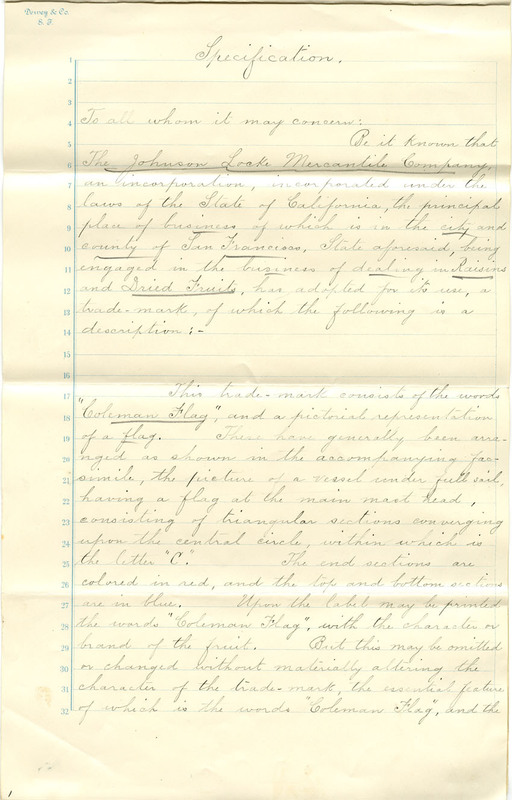 Dewey & Co.
S. F.
Specification.
1
2
3
4 To all whom it may concern:
5 Be it known that
6 The Johnson Locke Mercantile Company,
7 an incorporation, incorporated under the
8 laws of the State of California, the principal
9 place of business of which is in the city and
10 county of San Francisco, State aforesaid, being
11 engaged in the business of dealing in Raisins
12 and Dried Fruits, has adopted for its use, a
13 trade-mark, of which the following is a
14 description:-
15
16
17 This trade-mark consists of the words
18 "Coleman Flag", and a pictorial representation
19 of a flag. These have generally been arra-
20 nged as shown in the accompanying fac-
21 simile, the picture of a vessel under full sail,
22 having a flag at the main mast head,
23 consisting of triangular sections converging
24 upon the central circle, within which is
25 the letter "C". The end sections are
26 colored in red, and the top and bottom sections
27 are in blue. Upon the label may be printed
28 the words "Coleman Flag", with the character or
29 brand of the fruit. But this may be omitted
30 or changed without materially altering the
31 character of the trade-mark, the essential feature
32 of which is the words "Coleman Flag", and the